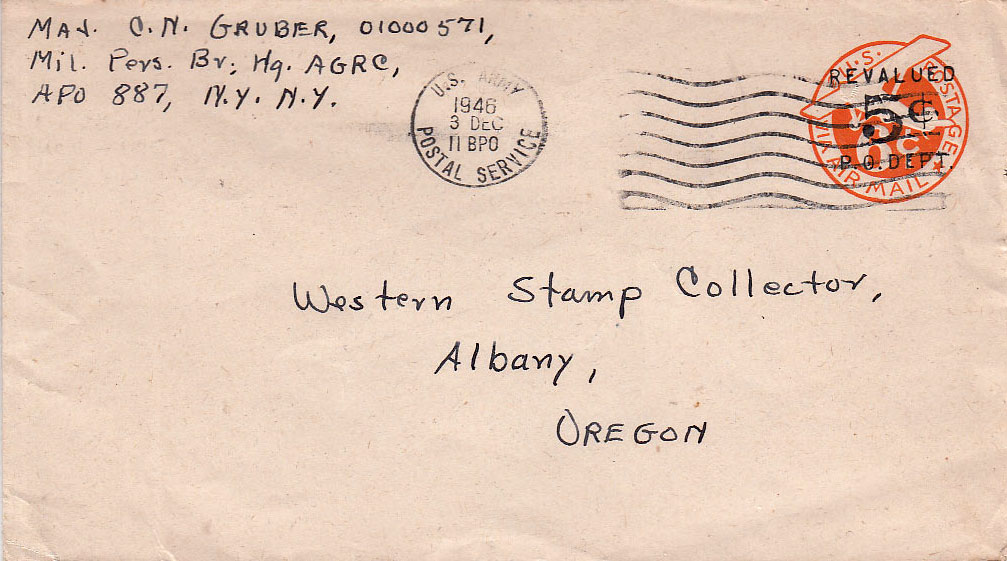 MAJ. C.N. GRUBER, 01000571,
Mil. Pers. Br; Hq. AGRC,
APO 887, N.Y. N.Y.
U.S. ARMY
1946
3 DEC
11 BPO
POSTAL SERVICE
U.S. POSTAGE
REVALUED
5¢
6c
P.O. DEPT.
VIA AIR MAIL
Western Stamp Collector,
Albany,
OREGON